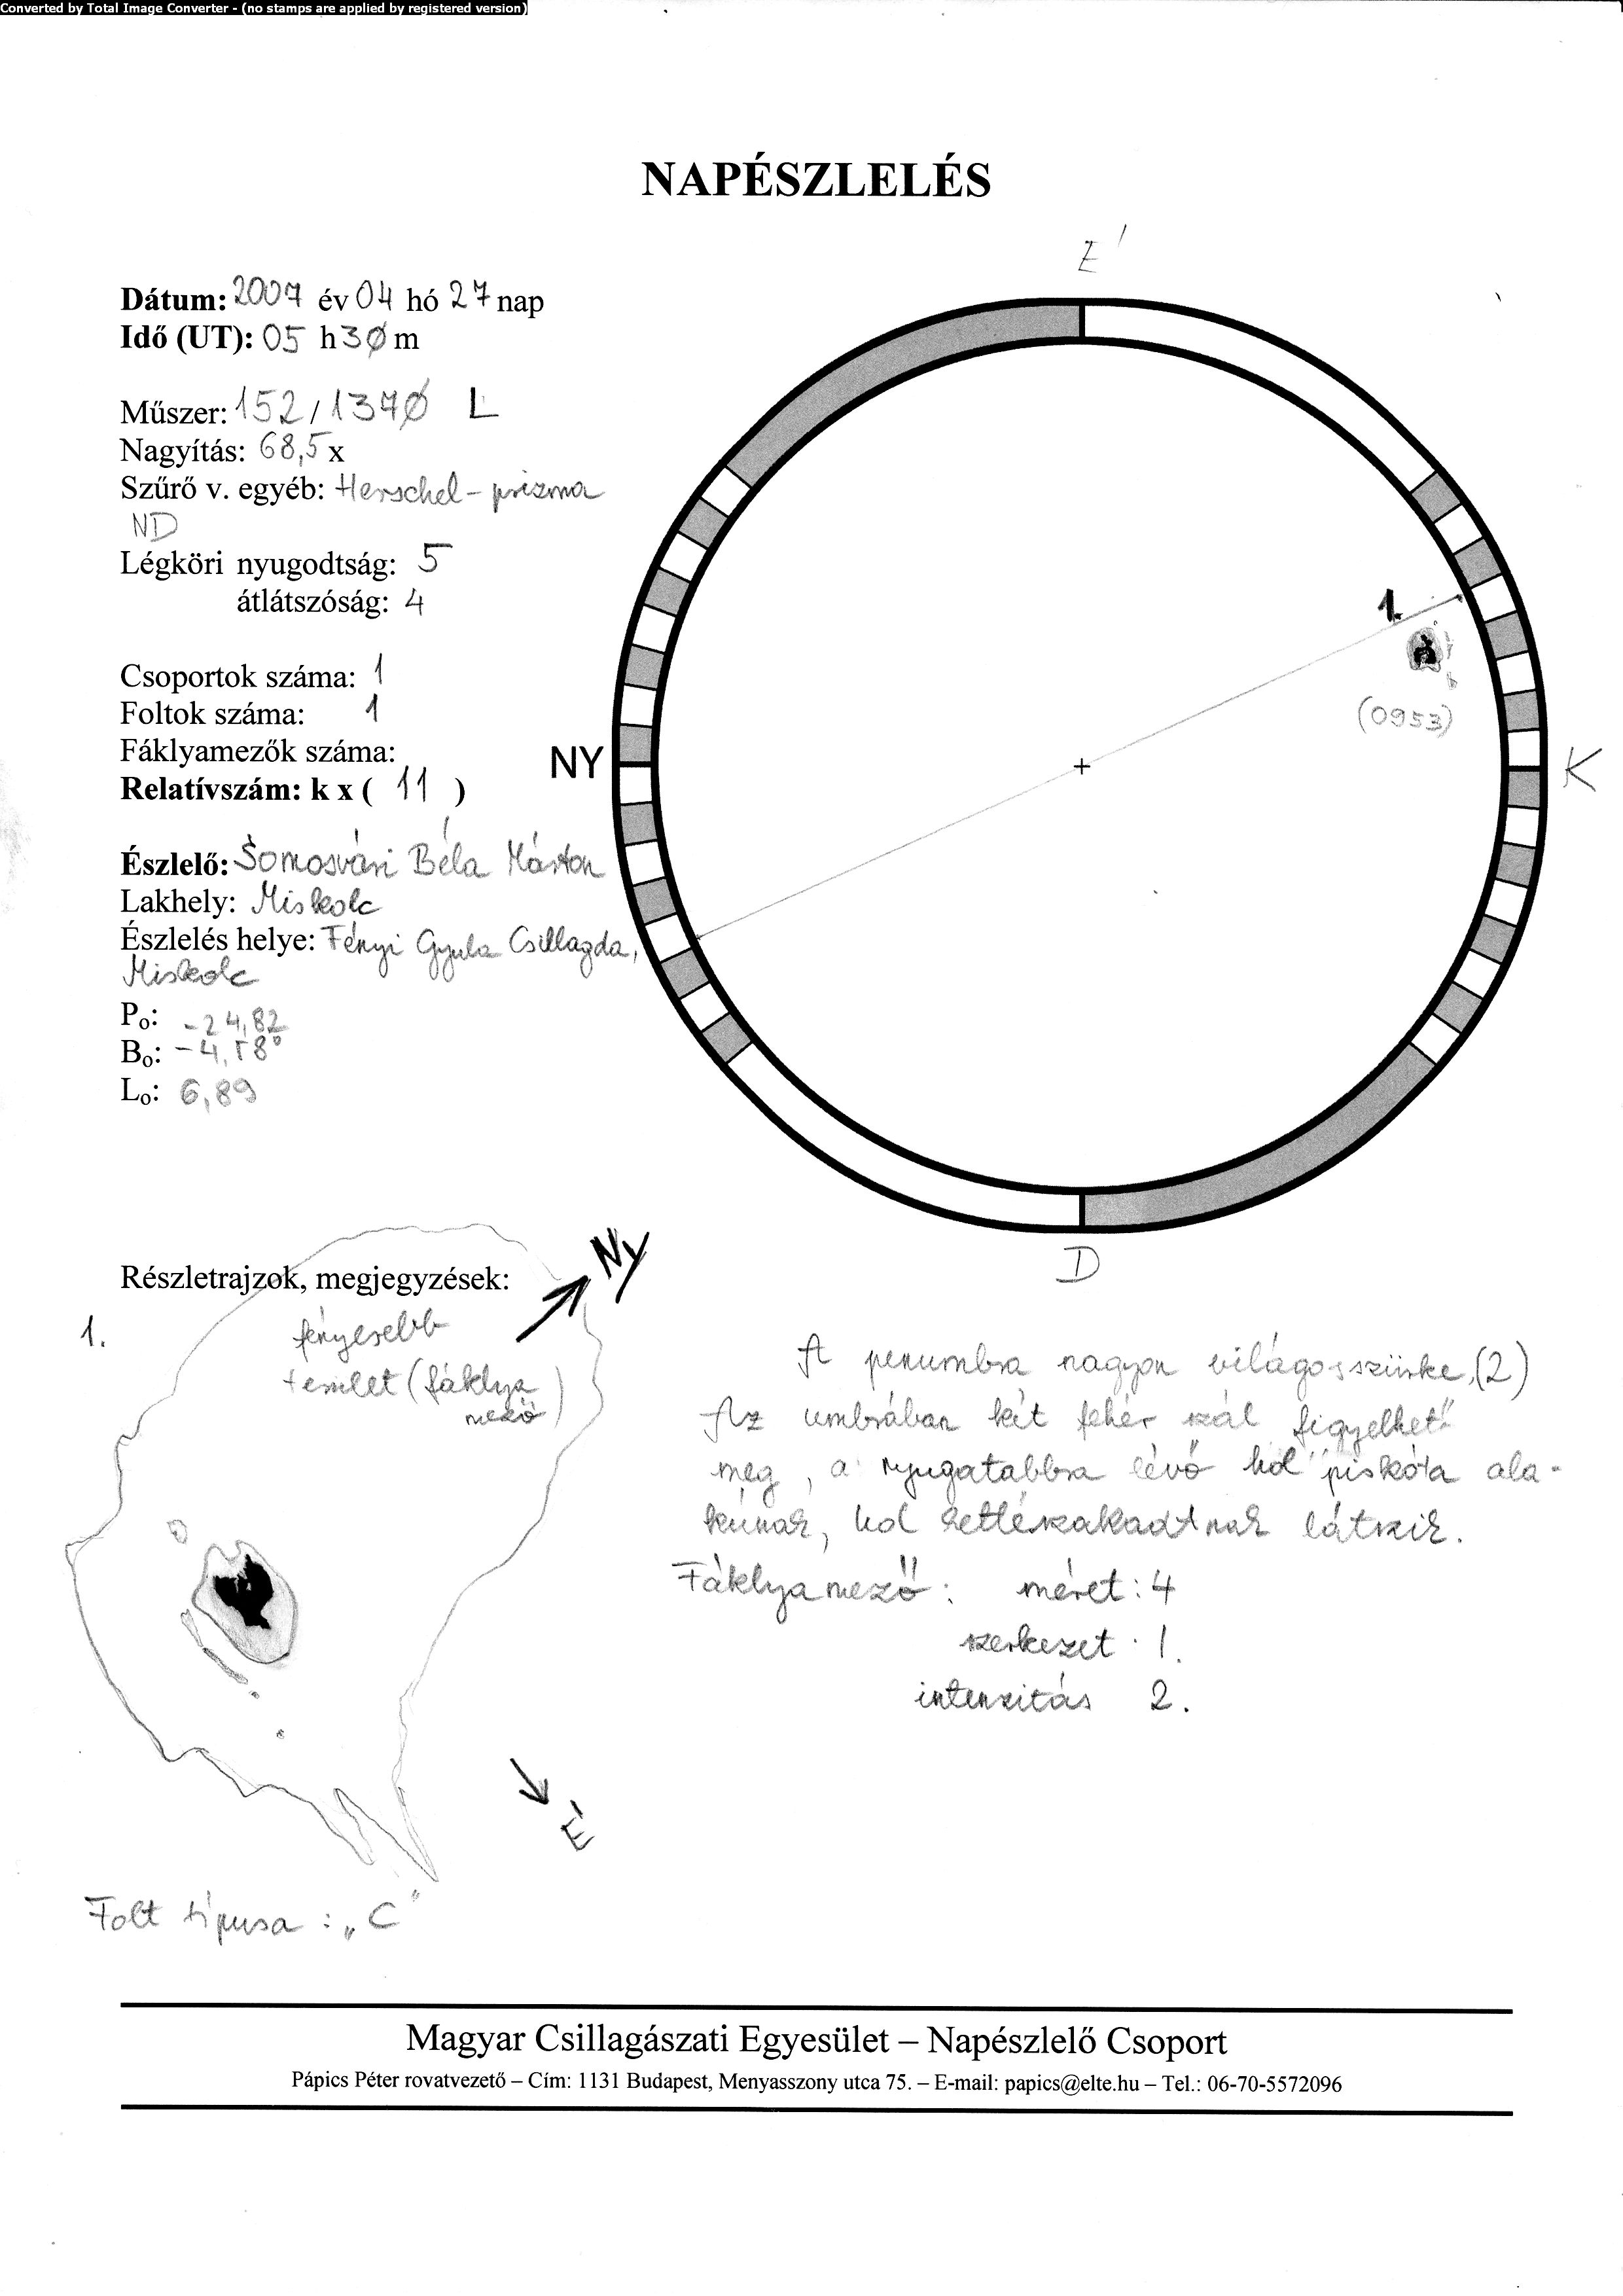 Converted by Total Image Converter - (no stamps are applied by registered version)
NAPÉSZLELÉS
É
Dátum: 2007 év 04 hó 27 nap
Idő (UT): 05 h 30 m
Műszer: 152/1370 L
Nagyítás: 68,5 x
Szűrő v. egyéb: Herschel-prizma
ND
Légköri nyugodtság: 5
átlátszóság: 4
Csoportok száma: 1
Foltok száma: 1
Fáklyamezők száma:
Relatívszám: k x ( 11 )
Észlelő: Somosvári Béla Márton
Lakhely: Miskolc
Észlelés helye: Fényi Gyula Csillagda,
Miskolc
Po: -24,82
Bo: -4,78°
Lo: 6,89
NY
1.
(0953)
K
D
Részletrajzok, megjegyzések:
1.
fényesebb
terület (fáklya
mező)
Ny
É
Folt típusa: „C"
A penumbra nagyon világosszürke, (2)
Az umbrában két fehér szál figyelhető
meg, a nyugatabbra lévő hol piskóta ala-
kúnak, hol kettészakadtnak látszik.
Fáklyamező: méret: 4
szerkezet: 1.
intenzitás 2.
Magyar Csillagászati Egyesület – Napészlelő Csoport
Pápics Péter rovatvezető – Cím: 1131 Budapest, Menyasszony utca 75. – E-mail: papics@elte.hu – Tel.: 06-70-5572096